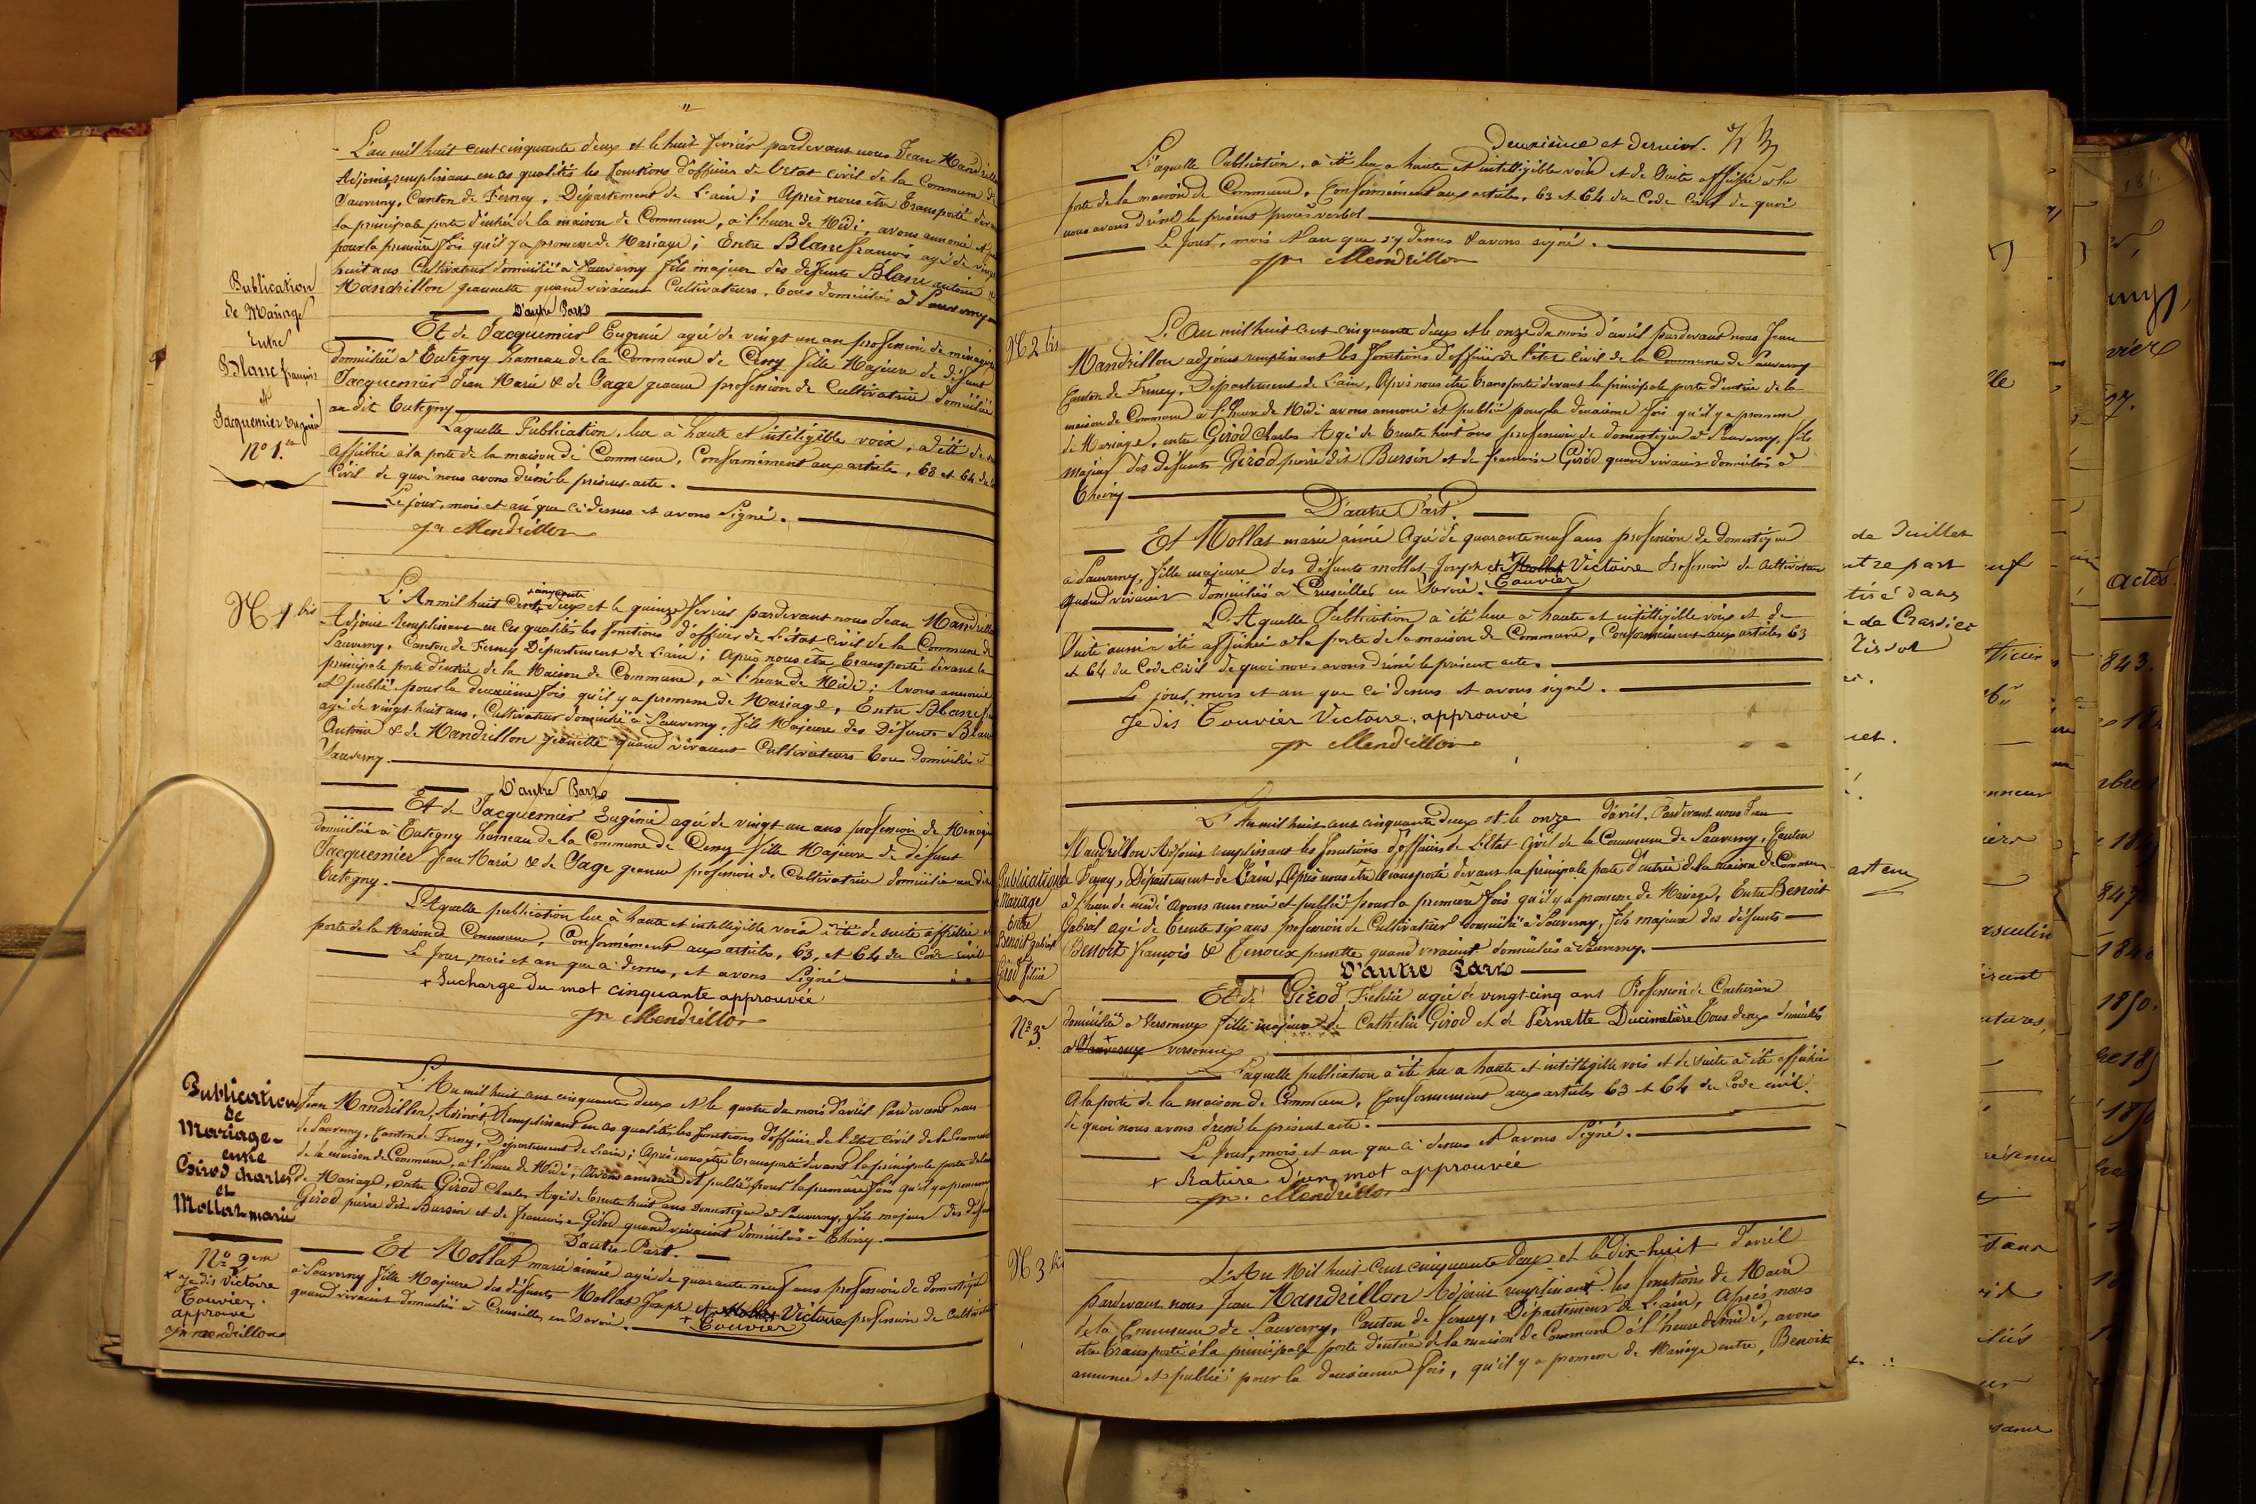 L'an mil huit cent cinquante deux et le huit février pardevant nous Jean Mandrillon
Adjoint, remplissant en ces qualités les fonctions d'officier de l'état civil de la Commune de
Sauverny, Canton de Ferney, Département de L'ain ; Après nous être transporté devant
la principale porte d'entrée de la maison de Commune, à l'heure de Midi, avons annoncé et
pour la première fois qu'il y a promesse de Mariage ; Entre Blanc françois agé de vingt
huit ans Cultivateur domicilié à Sauverny fils majeur des défunts Blanc antoine &
Mandrillon jeannette quand vivaient Cultivateurs. tous domiciliés à Sauverny
D'autre Part
Et de Jacquemier Eugénie agée de vingt un an profession de ménagère
domiciliée à Tutegny hameau de la Commune de Cessy fille Majeure de défunt
Jacquemier Jean Marie & de Page jeanne profession de Cultivatrice domiciliée
au dit Tutegny
Publication
de Mariage
Entre
Blanc françois
et
Jacquemier Eugénie
N° 1.er
Laquelle Publication, lue à haute et intéligible voix, a été de suite
affichée à la porte de la maison de Commune, Conformément aux article, 63 et 64 du Code
Civil de quoi nous avons dressé le présent acte.
Le jour, mois et an que ci dessus et avons Signé.
Jn Mendrillon
N 1 bis
L'An mil huit Cent + cinquante deux et le quinze février pardevant nous Jean Mandrillon
Adjoint Remplissant en Ces qualités les fonctions d'officier de l'état Civil de la Commune de
Sauverny, Canton de Ferney Département de L'ain ; Après nous être transporté devant la
principale porte d'entrée de la Maison de Commune, à l'heure de Midi ; Avons annoncé
et publié pour la deuxième fois qu'il y a promesse de Mariage, Entre Blanc
agé de vingt huit ans, Cultivateur domicilié à Sauverny, fils Majeure des Défunts Blanc
Antoine & de Mandrillon jeannette quand vivaient Cultivateurs tous domiciliés à
Sauverny.
D'autre Part
Et de Jacquemier Eugénie agée de vingt un ans profession de Ménagère
domiciliée à Tutegny hameau de la Commune de Cessy fille Majeure de défunt
Jacquemier Jean Marie & de Page jeanne profession de Cultivatrice domiciliée au dit
Tutegny.
L'Aquelle publication lue à haute et intelligible voix a été de suite affichée
porte de la Maison de Commune, Conformément aux articles, 63, et 64 du Code Civil
Le Jour, mois et an que ci dessus, et avons Signé
+ Surcharge du mot cinquante approuvée
Jn Mendrillon
L'An mil huit cent cinquante deux et le quatre du mois d'avril Pardevant nous
Jean Mandrillon, Adjoint, Remplissant en ces qualités les fonctions d'officier de l'état Civil de la Commune
de Sauverny, Canton de Ferney, Département de L'ain ; Après nous être transporté devant la principale porte d'entrée
de la maison de Commune, à l'heure de Midi, Avons annoncé et publié pour la première fois qu'il y a promesse
de Mariage, entre Girod Charles Agé de trente huit ans domestique à Sauverny, fils majeur des défunts
Girod pierre dit Bursin et de françoise Girod quand vivaient domiciliés à Thoiry.
D'autre Part.
Publication
de
Mariage
entre
Girod charles
et
Mollat marie
N° 2.em
Et Mollat marie aimée agée de quarante neuf ans profession de domestique
à Sauverny fille Majeure des défunts Mollat Joseph et + Mollat Victoire profession de Cultivateur
Touvier
quand vivaient domiciliés à Cruseilles en Savoie.
+ Je dis Victoire
Touvier.
approuvé
Jn mendrillon
Deuxième et dernier.
L'aquelle Publication, a été lue a haute et intelligible voix et de Suite affichée à la
porte de la maison de Commune, Conformément aux articles, 63 et 64 du Code Civil de quoi
nous avons dressé le présent procès verbal
Le Jour, mois & an que ci dessus & avons signé.
Jn Mendrillon
N 2 bis
L'An mil huit cent cinquante deux et le onze du mois d'avril pardevant nous Jean
Mandrillon adjoint remplissant les fonctions d'officier de l'état Civil de la Commune de Sauverny
Canton de Ferney, Département de L'ain, Après nous être transporté devant la principale porte d'entrée de la
maison de Commune à l'heure de Midi avons annoncé et publié pour la deuxième fois qu'il y a promesse
de Mariage, entre Girod Charles Agé de trente huit ans profession de domestique à Sauverny, fils
majeur des défunts Girod pierre dit Bursin et de francoise Girod quand vivaient domiciliés à
Thoiry
D'autre Part.
Et Mollat marie aimé Agée de quarante neuf ans profession de domestique
à Sauverny, fille majeure des défunts mollat Joseph et + Mollat Victoire profession de Cultivateur
Touvier
quand vivaient domiciliés à Cruseilles en Savoie.
L'Aquelle Publication a été lue à haute et intelligible voix et de
Suite aussi été affichée à la porte de la maison de Commune, Conformément aux articles 63
et 64 du Code Civil de quoi nous avons dressé le présent acte.
Le jour, mois et an que ci dessus et avons signé.
Je dis Touvier Victoire, approuvé
Jn Mendrillon
L'An mil huit cent cinquante deux et le onze d'avril, Pardevant nous Jean
Mandrillon Adjoint remplissant les fonctions d'officier de L'Etat Civil de la Commune de Sauverny, Canton
de Ferney, Département de L'ain, Après nous être transporté devant la principale porte d'entrée de la maison de Commune
à l'heure de midi avons annoncé et publié pour la première fois qu'il y a promesse de Mariage, Entre Benoit
Gabriel agé de trente six ans profession de Cultivateur domicilié à Sauverny, fils majeur des défunts
Benoit françois & Terroux pernette quand vivaient domiciliés à Sauverny.
D'autre Part
Publication
de Mariage
Entre
Benoit gabriel
et
Girod félicie
N° 3.e
Et de Girod Felicie agée de vingt-cinq ans Profession de Couturière
domiciliée à Versonnex fille majeure de Cathelin Girod et de Pernette Ducimetière tous deux domiciliés
à + Sauverny versonnex
L'aquelle publication a été lue a haute et intelligible voix et de suite a été affichée
A la porte de la maison de Commune, Conformément aux articles 63 et 64 du Code civil.
de quoi nous avons dressé le présent acte.
Le Jour, mois et an que ci dessus et avons Signé.
+ Rature D'un mot approuvée
Jn. Mendrillon
N 3 bis
L'An Mil huit Cent cinquante Deux et le Dix-huit d'avril
Pardevant nous Jean Mandrillon Adjoint remplissant les fonctions de Maire
de la Commune de Sauverny, Canton de Ferney, Département de L'ain, Après nous
être transporté à la principale porte d'entrée de la maison de Commune à l'heure de midi, avons
annoncé et publié pour la deuxième fois, qu'il y a promesse de Mariage entre, Benoit
de Juillet
tiré dans
actes
843.
847
1850.